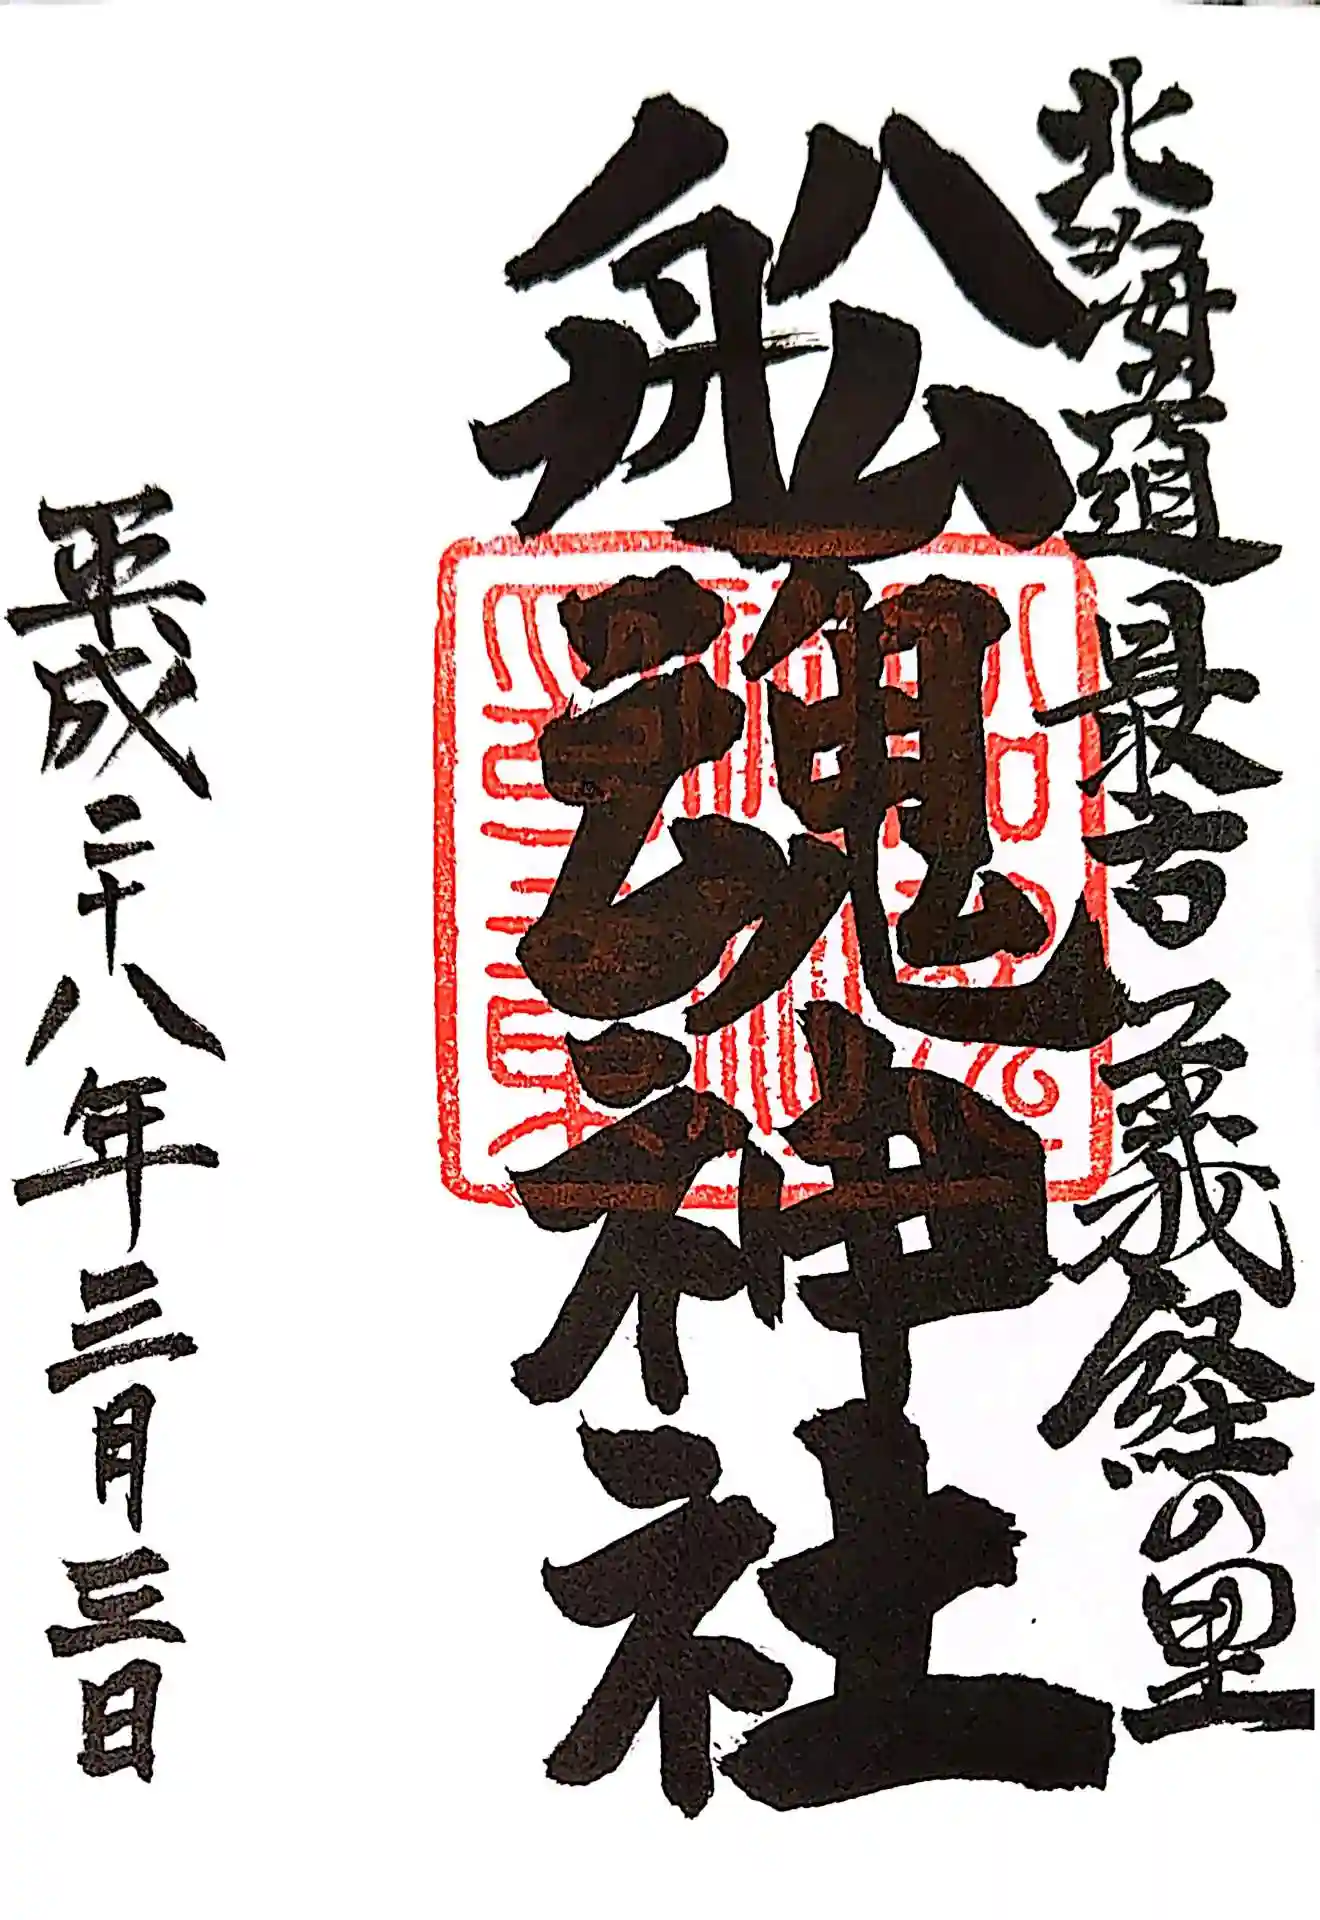 北海道最古義経の里
船魂神社
平成二十八年三月三日